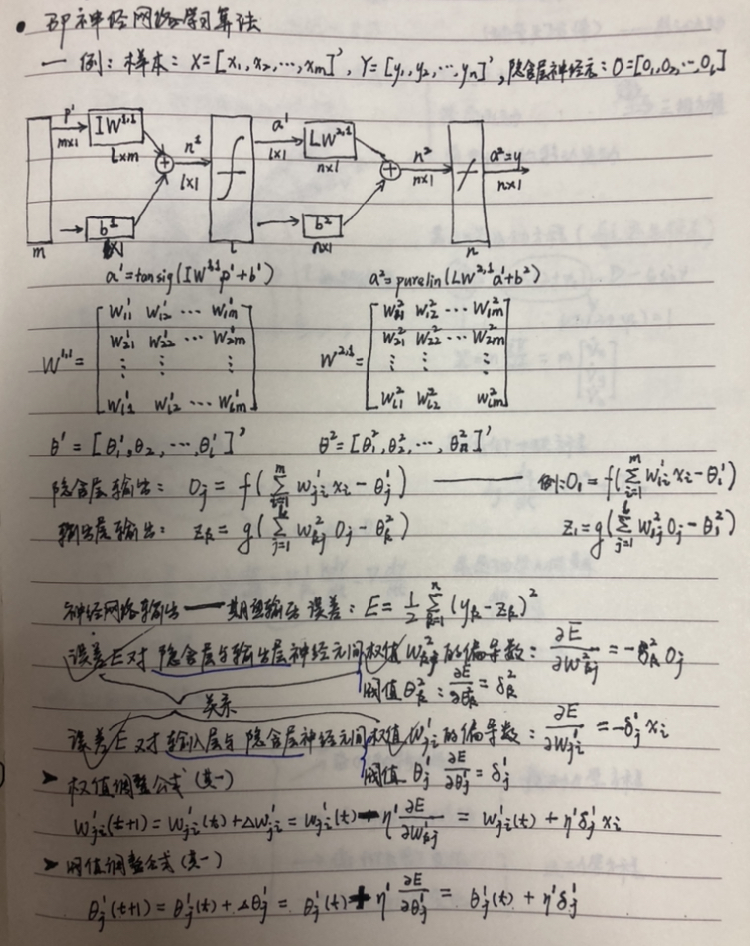 • BP神经网络学习算法
一 例：样本：X=[x₁,x₂,⋯,xm]', Y=[y₁,y₂,⋯,yn]', 隐含层神经元：O=[O₁,O₂,⋯,Ol]
p¹ IW¹,¹ n¹ a¹ LW²,¹ n² a²=y
m×1 l×m l×1 l×1 n×l n×1 n×1
b¹ b²
m l×1 l n×1 n
a¹=tansig(IW¹,¹p¹+b¹) a²=purelin(LW²,¹a¹+b²)
W¹,¹= [W₁₁¹ W₁₂¹ ⋯ W₁m¹ W²,¹= [W₁₁² W₁₂² ⋯ W₁m²
W₂₁¹ W₂₂¹ ⋯ W₂m¹ W₂₁² W₂₂² ⋯ W₂m²
⋮ ⋮ ⋮ ⋮ ⋮ ⋮
Wl₁¹ Wl₂¹ ⋯ Wlm¹] Wl₁² Wl₂² Wlm²]
θ¹=[θ₁¹,θ₂,⋯,θl¹]' θ²=[θ₁²,θ₂²,⋯,θn²]'
隐含层输出：Oj=f(∑ᵢ₌₁ᵐ wji¹xi-θj¹) —— 例：O₁=f(∑ᵢ₌₁ᵐ w₁i¹xi-θ₁¹)
输出层输出：zk=g(∑ⱼ₌₁ˡ wkj²Oj-θk²) z₁=g(∑ⱼ₌₁ˡ w₁j²Oj-θ₁²)
神经网络输出——期望输出 误差：E=1/2 ∑ₖ₌₁ⁿ (yk-zk)²
误差E对 隐含层与输出层神经元间权值Wkj²的偏导数：∂E/∂Wkj²=-δk²Oj
阈值θk²：∂E/∂θk²=δk²
关系
误差E对 输入层与隐含层神经元间权值Wji¹的偏导数：∂E/∂Wji¹=-δj¹xi
阈值 θj¹ ∂E/∂θj¹=δj¹
➤ 权值调整公式(其一)
Wji¹(t+1)=Wji¹(t)+ΔWji¹=Wji¹(t)-η¹∂E/∂Wkj¹=Wji¹(t)+η¹δj¹xi
➤ 阈值调整公式(其一)
θj¹(t+1)=θj¹(t)+Δθj¹=θj¹(t)+η¹∂E/∂θj¹=θj¹(t)+η¹δj¹